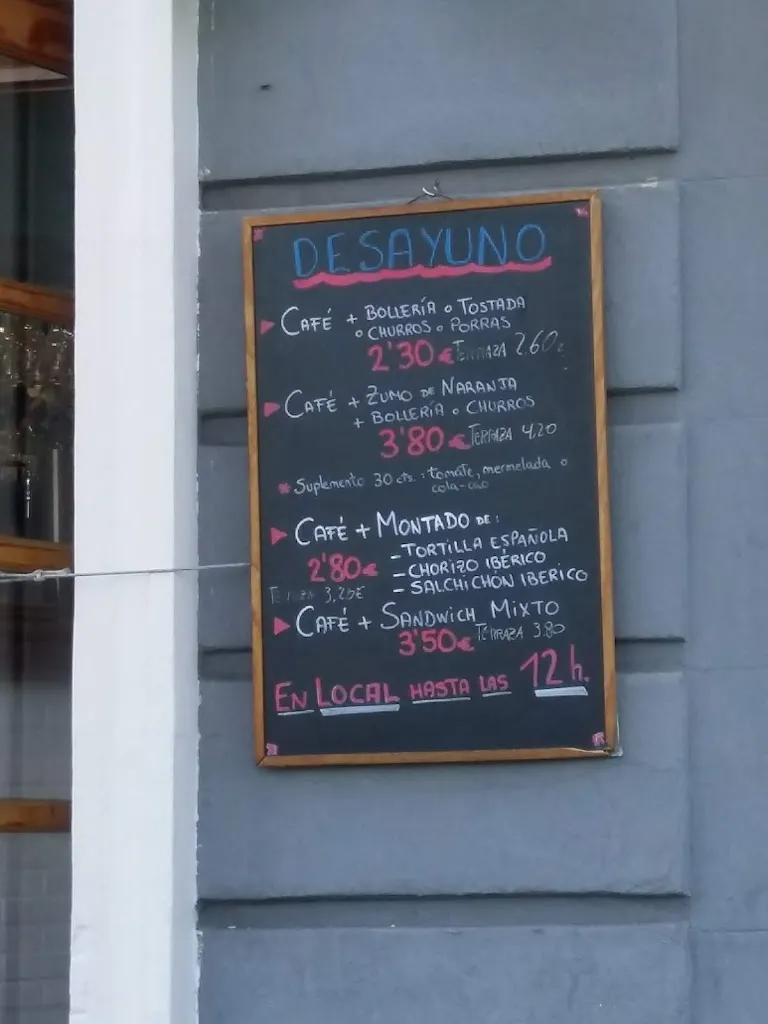 DESAYUNO
CAFÉ + BOLLERÍA o TOSTADA
o CHURROS o PORRAS
2'30€ TERRAZA 2.60
CAFÉ + ZUMO DE NARANJA
+ BOLLERÍA o CHURROS
3'80€ TERRAZA 4,20
* Suplemento 30 cts.: tomate, mermelada o
cola-cao
CAFÉ + MONTADO DE:
- TORTILLA ESPAÑOLA
2'80€ - CHORIZO IBÉRICO
TERRAZA 3,25€ - SALCHICHÓN IBERICO
CAFÉ + SANDWICH MIXTO
3'50€ TERRAZA 3.80
EN LOCAL HASTA LAS 12h.